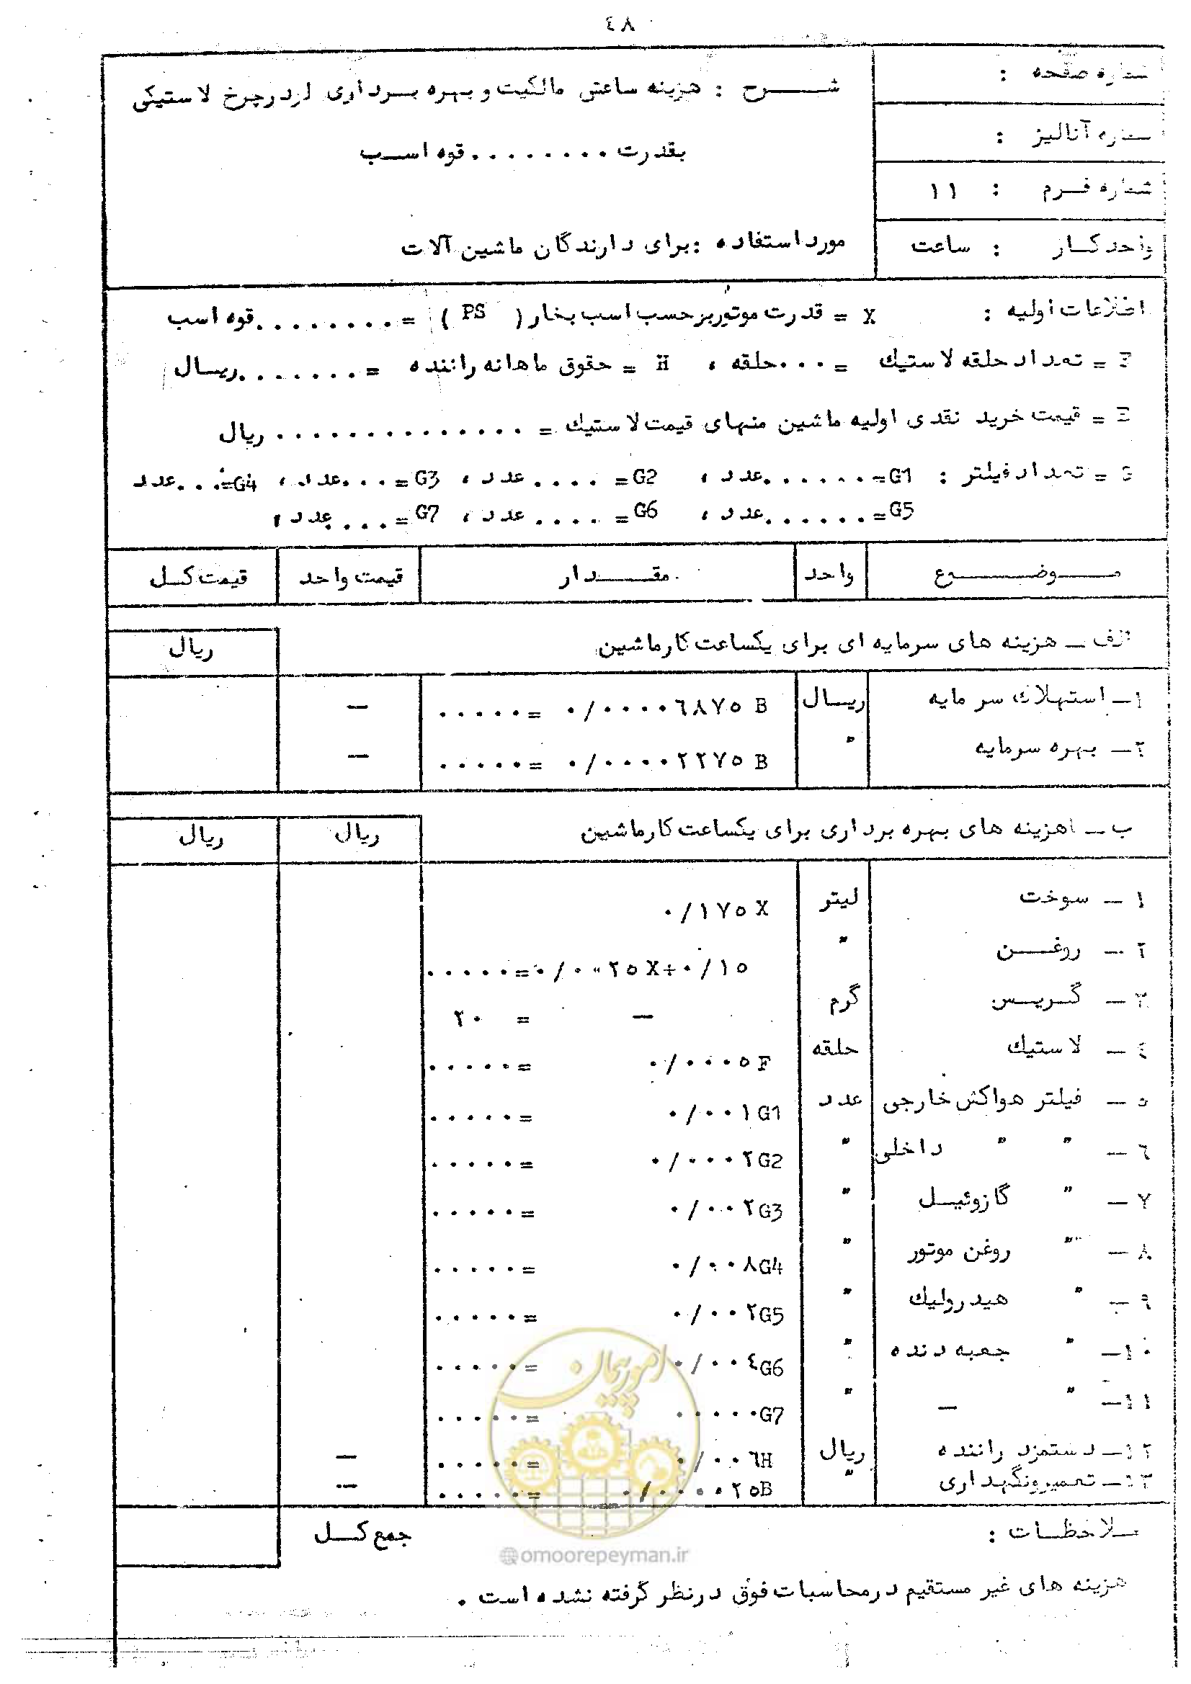 ٤٨
شماره صفحه :
شماره آنالیز :
شماره فرم : ١١
واحد کار : ساعت
شرح : هزینه ساعتی مالکیت و بهره برداری لدر چرخ لاستیکی
بقدرت ........ قوه اسب
مورد استفاده : برای دارندگان ماشین آلات
اطلاعات اولیه : X = قدرت موتور برحسب اسب بخار ( PS ) = ........ قوه اسب
F = تعداد حلقه لاستیک = .... حلقه ، H = حقوق ماهانه راننده = ........ ریال
B = قیمت خرید نقدی اولیه ماشین منهای قیمت لاستیک = .............. ریال
G = تعداد فیلتر : G1= ....... عدد ، G2= .... عدد ، G3= ... عدد ، G4= ... عدد
G5= ....... عدد ، G6= .... عدد ، G7= ... عدد ،
موضوع واحد مقدار قیمت واحد قیمت کل
الف ـ هزینه های سرمایه ای برای یکساعت کار ماشین ریال
١ـ استهلاک سرمایه ریال ٠/٠٠٠٠٦٨٧٥ B = ..... ـ
٢ـ بهره سرمایه " ٠/٠٠٠٠٢٢٧٥ B = ..... ـ
ب ـ هزینه های بهره برداری برای یکساعت کار ماشین ریال ریال
١ ـ سوخت لیتر ٠/١٧٥ X
٢ ـ روغن " ٠/٠٠٢٥ X+٠/١٥ = .....
٣ ـ گریس گرم ـ = ٢٠
٤ ـ لاستیک حلقه ٠/٠٠٠٥ F = .....
٥ ـ فیلتر هواکش خارجی عدد ٠/٠٠١ G1 = .....
٦ ـ " " داخلی " ٠/٠٠٠٢ G2 = .....
٧ ـ " گازوئیل " ٠/٠٠٢ G3 = .....
٨ ـ " روغن موتور " ٠/٠٠٨ G4 = .....
٩ ـ " هیدرولیک " ٠/٠٠٢ G5 = .....
١٠ـ " جعبه دنده " ٠/٠٠٤ G6 = .....
١١ـ " ـ " ..... G7 = .....
١٢ـ دستمزد راننده ریال ٠/٠٠٦ H = ..... ـ
١٣ـ تعمیر و نگهداری " ٠/٠٠٠٠٢٥ B = ..... ـ
ملاحظات : جمع کل
هزینه های غیر مستقیم در محاسبات فوق در نظر گرفته نشده است .
امور پیمان
@omoorepeyman.ir